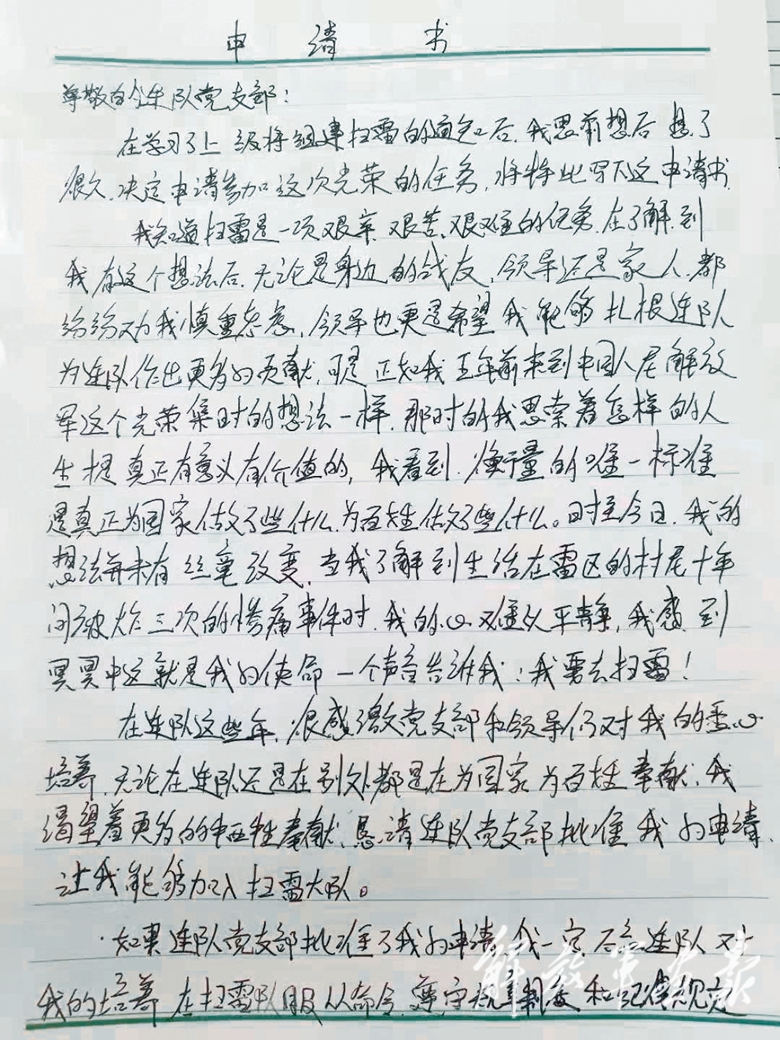 申请书
尊敬的连队党支部：
在学习了上级将组建扫雷的通知后，我思前想后想了
很久，决定申请参加这次光荣的任务，将特此写下这申请书
我知道扫雷是一项艰辛、艰苦、艰难的任务，在了解到
我有这个想法后，无论是身边的战友，领导还是家人，都
纷纷劝我慎重考虑，领导也更是希望我能够扎根连队
为连队作出更多的贡献，可是正如我五年前来到中国人民解放
军这个光荣集时的想法一样，那时的我思索着怎样的人
生提真正有意义有价值的，我看到，衡量的唯一标准
是真正为国家做了些什么，为百姓做了些什么。时至今日，我的
想法并未有丝毫改变，当我了解到生活在雷区的村民十年
间被炸三次的惨痛事件时，我的心难以平静，我感到
冥冥中这就是我的使命，一个声音告诉我：我要去扫雷！
在连队这些年，很感激党支部和领导们对我的悉心
培养，无论在连队还是在别处都是在为国家为百姓奉献，我
渴望着更多的牺牲奉献，恳请连队党支部批准我的申请，
让我能够加入扫雷大队。
如果连队党支部批准了我的申请，我一定不忘连队对
我的培养，在扫雷队服从命令，遵守规章制度和纪律规定
解放军公报